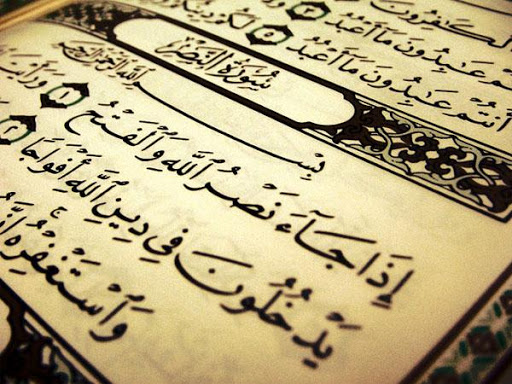 الْكَٰفِرُونَ
أَنتُمْ عَٰبِدُونَ مَآ أَعْبُدُ ٣
أَنتُمْ عَٰبِدُونَ مَآ أَعْبُدُ ٥ لَكُمْ دِينُكُمْ
سُورَةُ النَّصْرِ
بِسْمِ اللَّهِ الرَّحْمَٰنِ الرَّحِيمِ
إِذَا جَآءَ نَصْرُ اللَّهِ وَالْفَتْحُ ١ وَرَأَيْتَ
يَدْخُلُونَ فِي دِينِ اللَّهِ أَفْوَاجًا ٢
وَاسْتَغْفِرْهُ